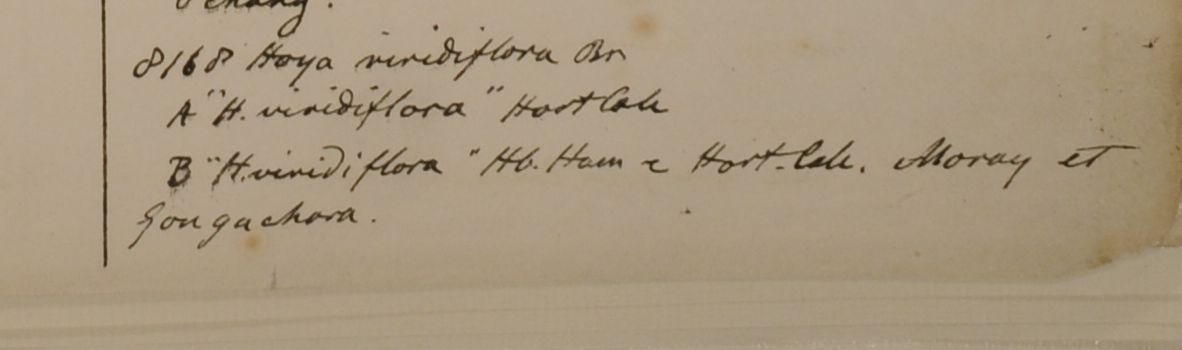 8168 Hoya viridiflora Br
A "H. viridiflora" Hort Calc
B "H. viridiflora" Hb. Ham e Hort. Calc. Moray et
Gongachora.